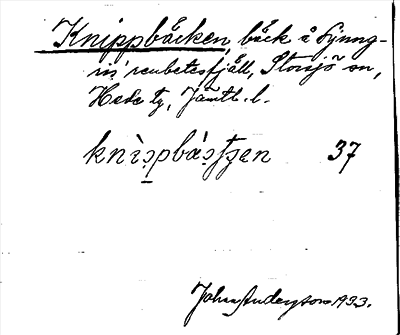 Knippbäcken, bäck å Ljung-
ris' renbetesfjäll, Storsjö sn,
Hede tg, Jämtl. l.
knìpbástsen 37
John Anderson 1933.